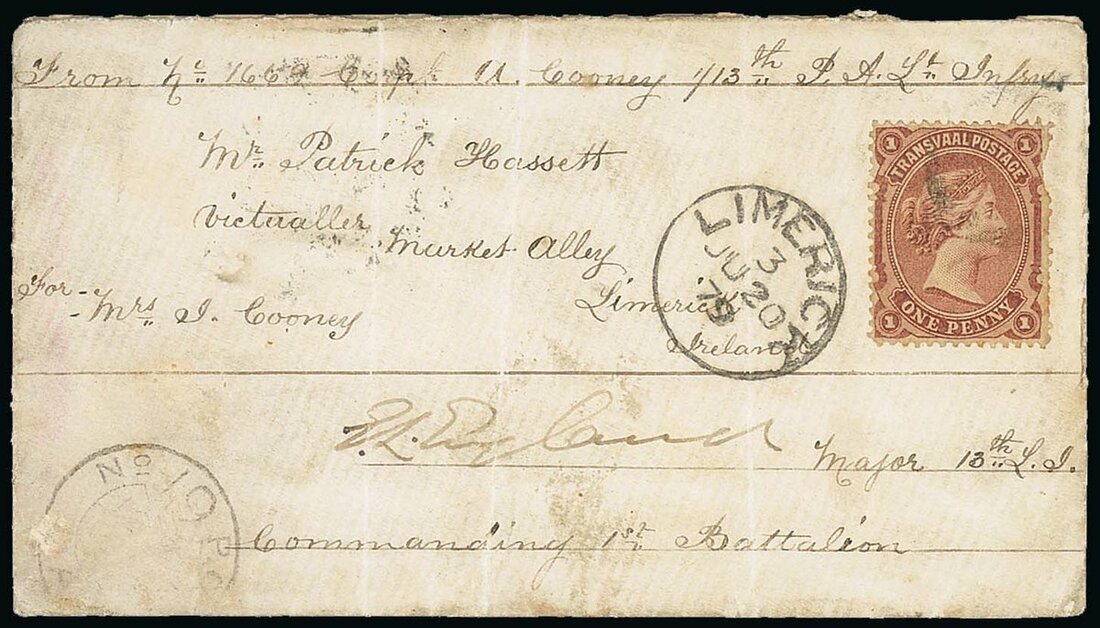 From No 1660 Corpl U. Cooney 1/13th P. A. Lt. Infry
Mr. Patrick Hassett
Victualler
Market Alley
Limerick
Ireland
For
Mrs. J. Cooney
LIMERICK
3
JU 20
79
TRANSVAAL POSTAGE
1 1
ONE PENNY
1 1
England
Major 13th L.I.
Commanding 1st Battalion
No 10